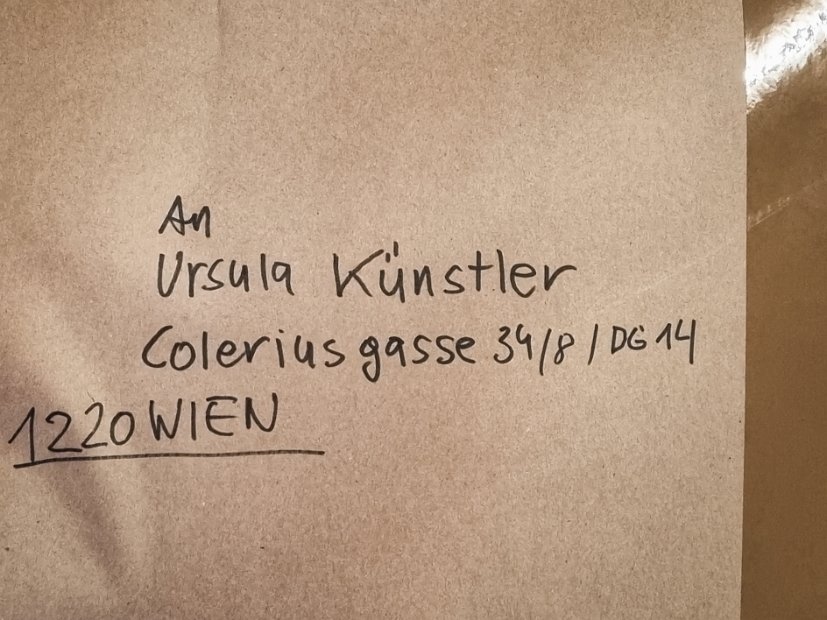 An
Ursula Künstler
Coleriusgasse 34/8/DG 14
1220 WIEN